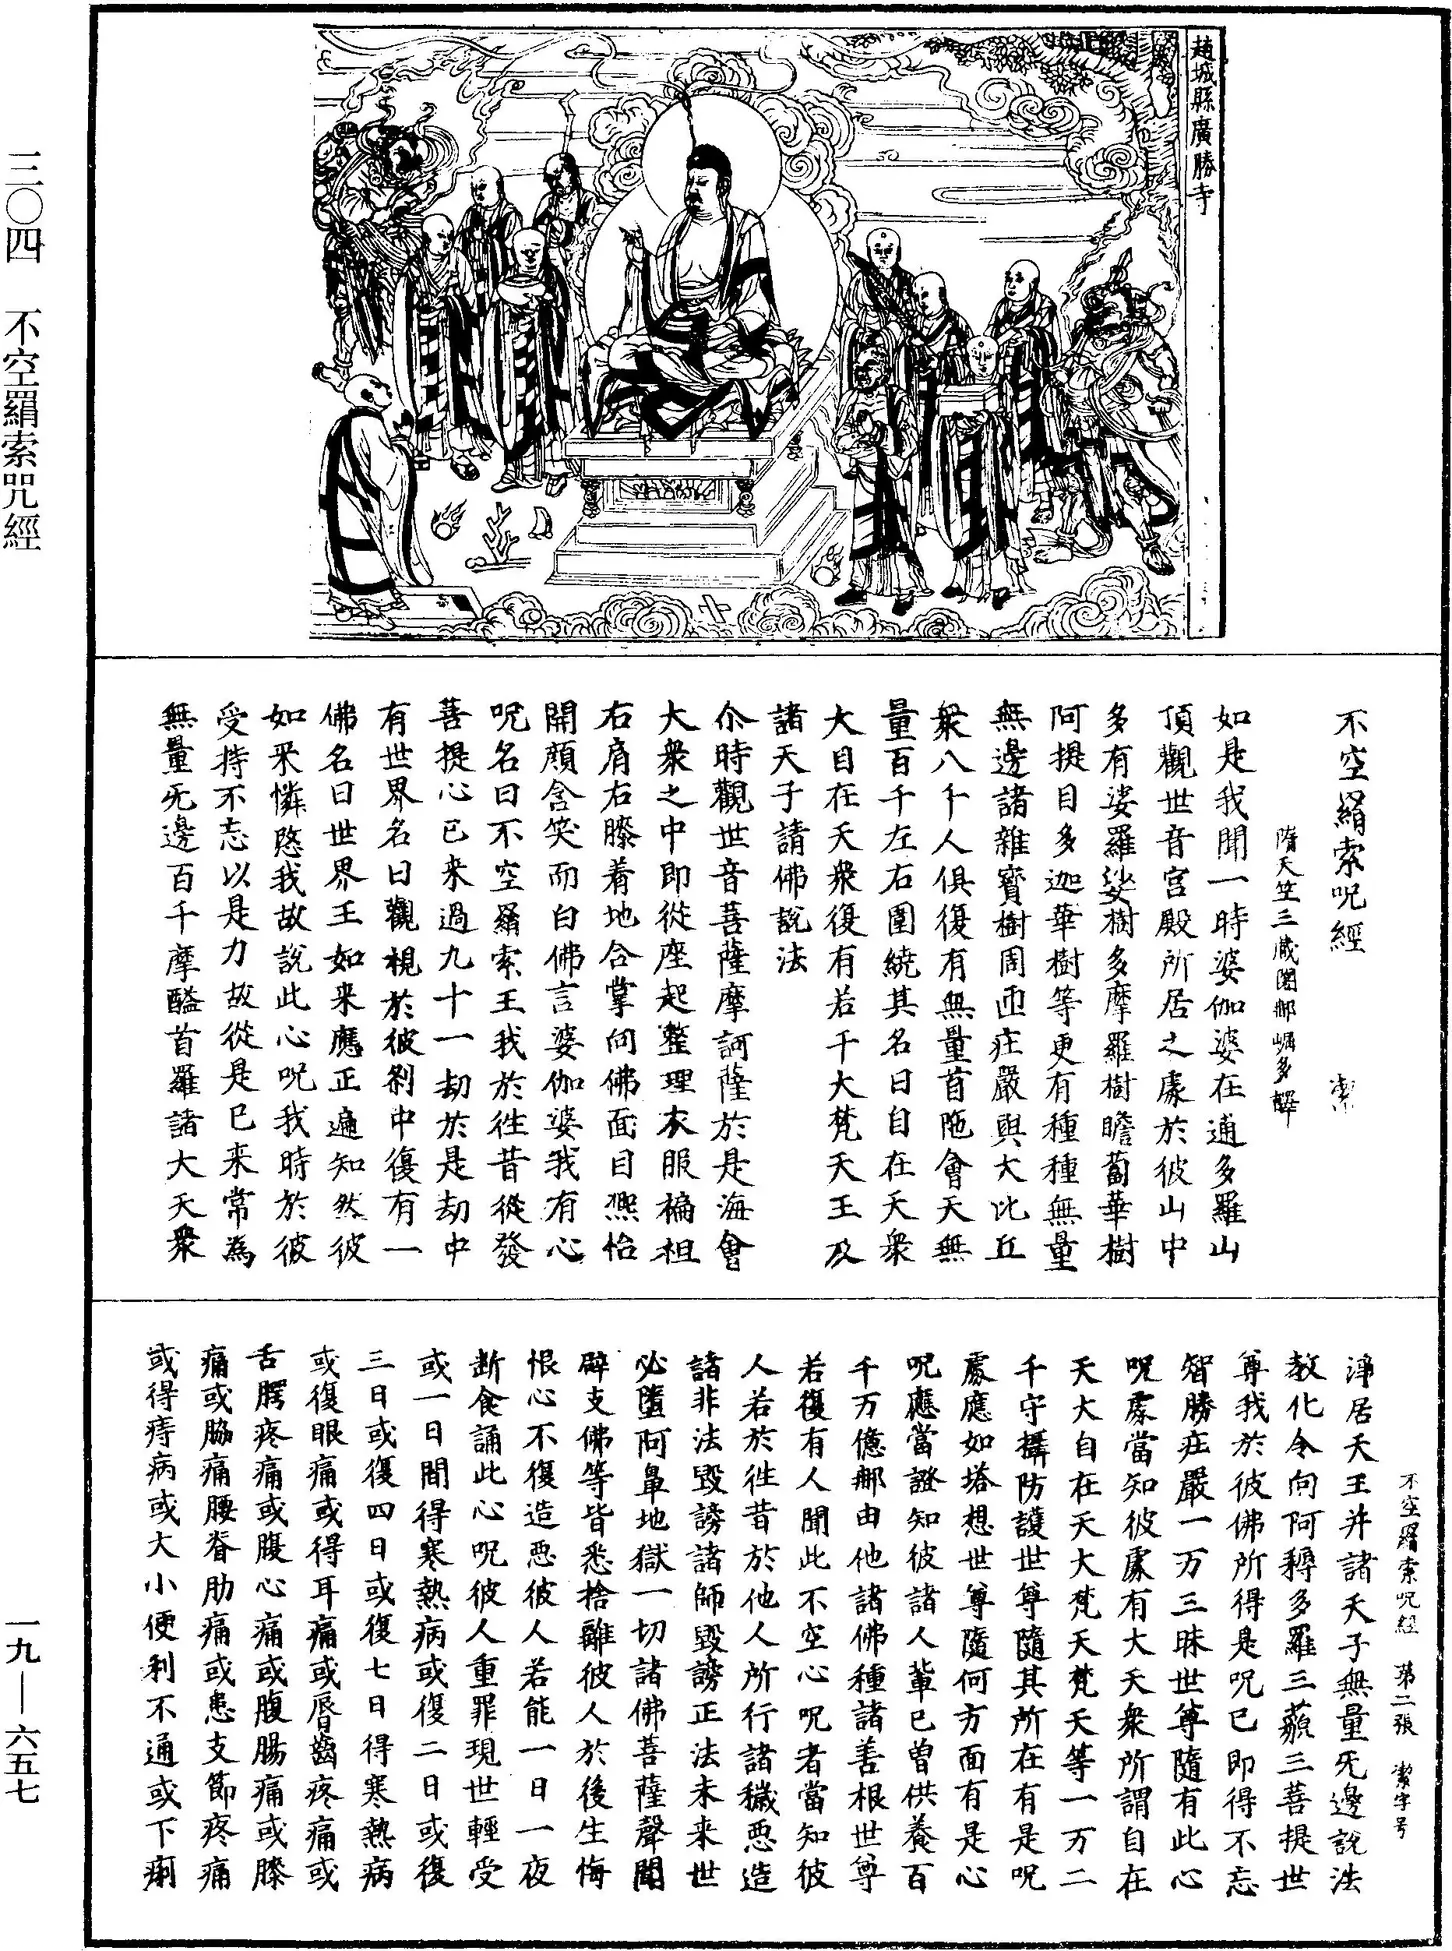 三〇四　不空羂索咒經
一九—六五七
趙城縣廣勝寺
不空羂索呪經　潔
隋天竺三藏闍那崛多譯
如是我聞一時婆伽婆在逋多羅山
頂觀世音宮殿所居之處於彼山中
多有娑羅娑樹多摩羅樹瞻蔔華樹
阿提目多迦華樹等更有種種無量
無邊諸雜寶樹周匝庄嚴與大比丘
衆八千人俱復有無量首陁會天無
量百千左右圍繞其名曰自在天衆
大自在天衆復有若干大梵天王及
諸天子請佛說法
尒時觀世音菩薩摩訶薩於是海會
大衆之中即從座起整理衣服褊袒
右肩右膝著地合掌向佛面目熈怡
開顔含笑而白佛言婆伽婆我有心
呪名曰不空羂索王我於往昔從發
菩提心已来過九十一劫於是劫中
有世界名曰觀視於彼剎中復有一
佛名曰世界王如来應正遍知然彼
如来憐愍我故說此心呪我時於彼
受持不忘以是力故從是已来常為
無量无邊百千摩醯首羅諸大天衆
不空羂索呪經　第二張　潔字号
淨居天王并諸天子無量无邊說法
教化令向阿耨多羅三藐三菩提世
尊我於彼佛所得是呪已即得不忘
智勝庄嚴一万三昧世尊隨有此心
呪處當知彼處有大天衆所謂自在
天大自在天大梵天梵天等一万二
千守攝防護世尊隨其所在有是呪
處應如塔想世尊隨何方面有是心
呪應當證知彼諸人軰已曾供養百
千万億那由他諸佛種諸善根世尊
若復有人聞此不空心呪者當知彼
人若於往昔於他人所行諸穢惡造
諸非法毀謗諸師毀謗正法未来世
必墮阿鼻地獄一切諸佛菩薩聲聞
辟支佛等皆悉捨離彼人於後生悔
恨心不復造惡彼人若能一日一夜
断食誦此心呪彼人重罪現世輕受
或一日間得寒熱病或復二日或復
三日或復四日或復七日得寒熱病
或復眼痛或得耳痛或脣齒疼痛或
舌腭疼痛或腹心痛或腹腸痛或膝
痛或脇痛腰脊肋痛或患支節疼痛
或得痔病或大小便利不通或下痢